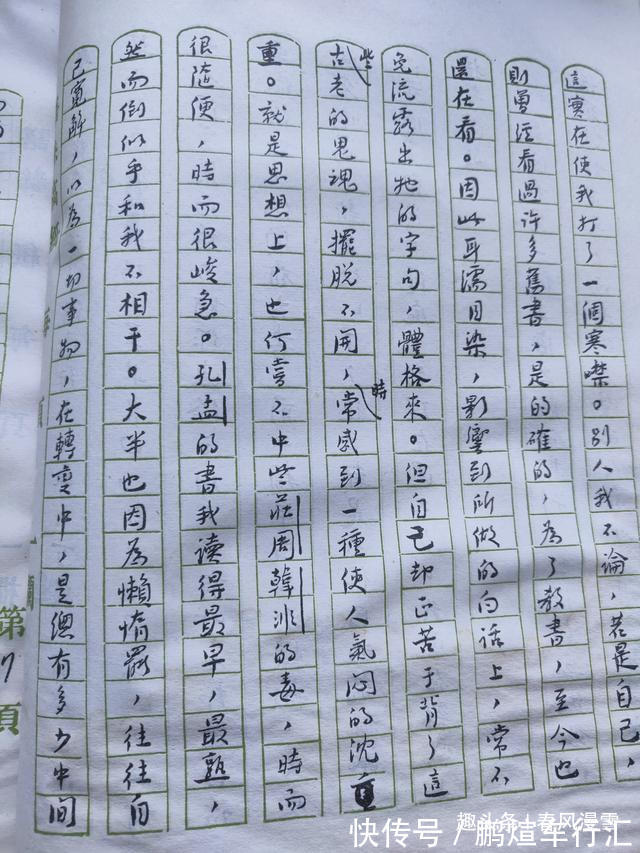 這實在使我打了一個寒噤。別人我不論,若是自己,
則曾經看過許多舊書,是的確的,為了教書,至今也
還在看。因此耳濡目染,影響到所做的白話上,常不
免流露出牠的字句,體格來。但自己卻正苦于背了這
些古老的鬼魂,擺脫不開,時常感到一種使人氣悶的沈重
重。就是思想上,也何嘗不中些莊周韓非的毒,時而
很隨便,時而很峻急。孔孟的書我讀得最早,最熟,
然而倒似乎和我不相干。大半也因為懶惰罷,往往自
己寬解,以為一切事物,在轉變中,是總有多少中間
第
7
頁
趣头条+春风漫雪
快传号/鹏煊车行汇